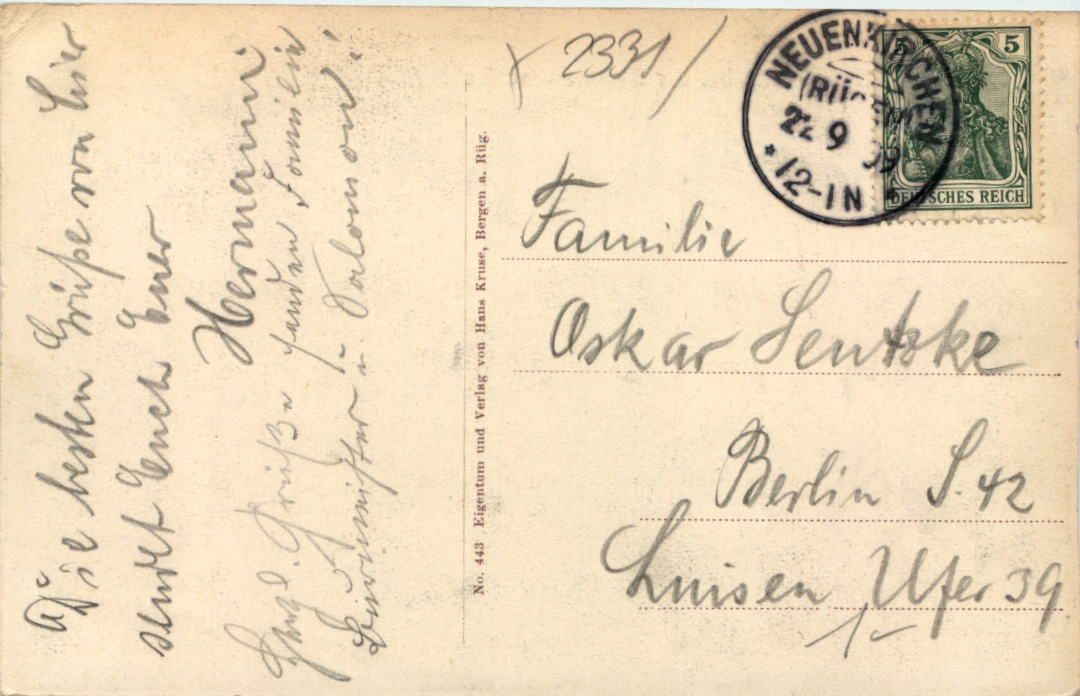 Die besten Grüße von hier
sendet Euch Euer
Hermann
Herzl. Grüße senden Familie
u. Salomon!
No. 443 Eigentum und Verlag von Hans Kruse, Bergen a. Rüg.
2331
NEUENKIRCHEN
(RÜGEN)
22 9 09
* 12-1N *
5 5
DEUTSCHES REICH
Familie
Oskar Lentzke
Berlin S. 42
Luisen Ufer 39